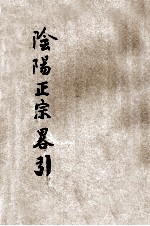 陰陽正宗畧引